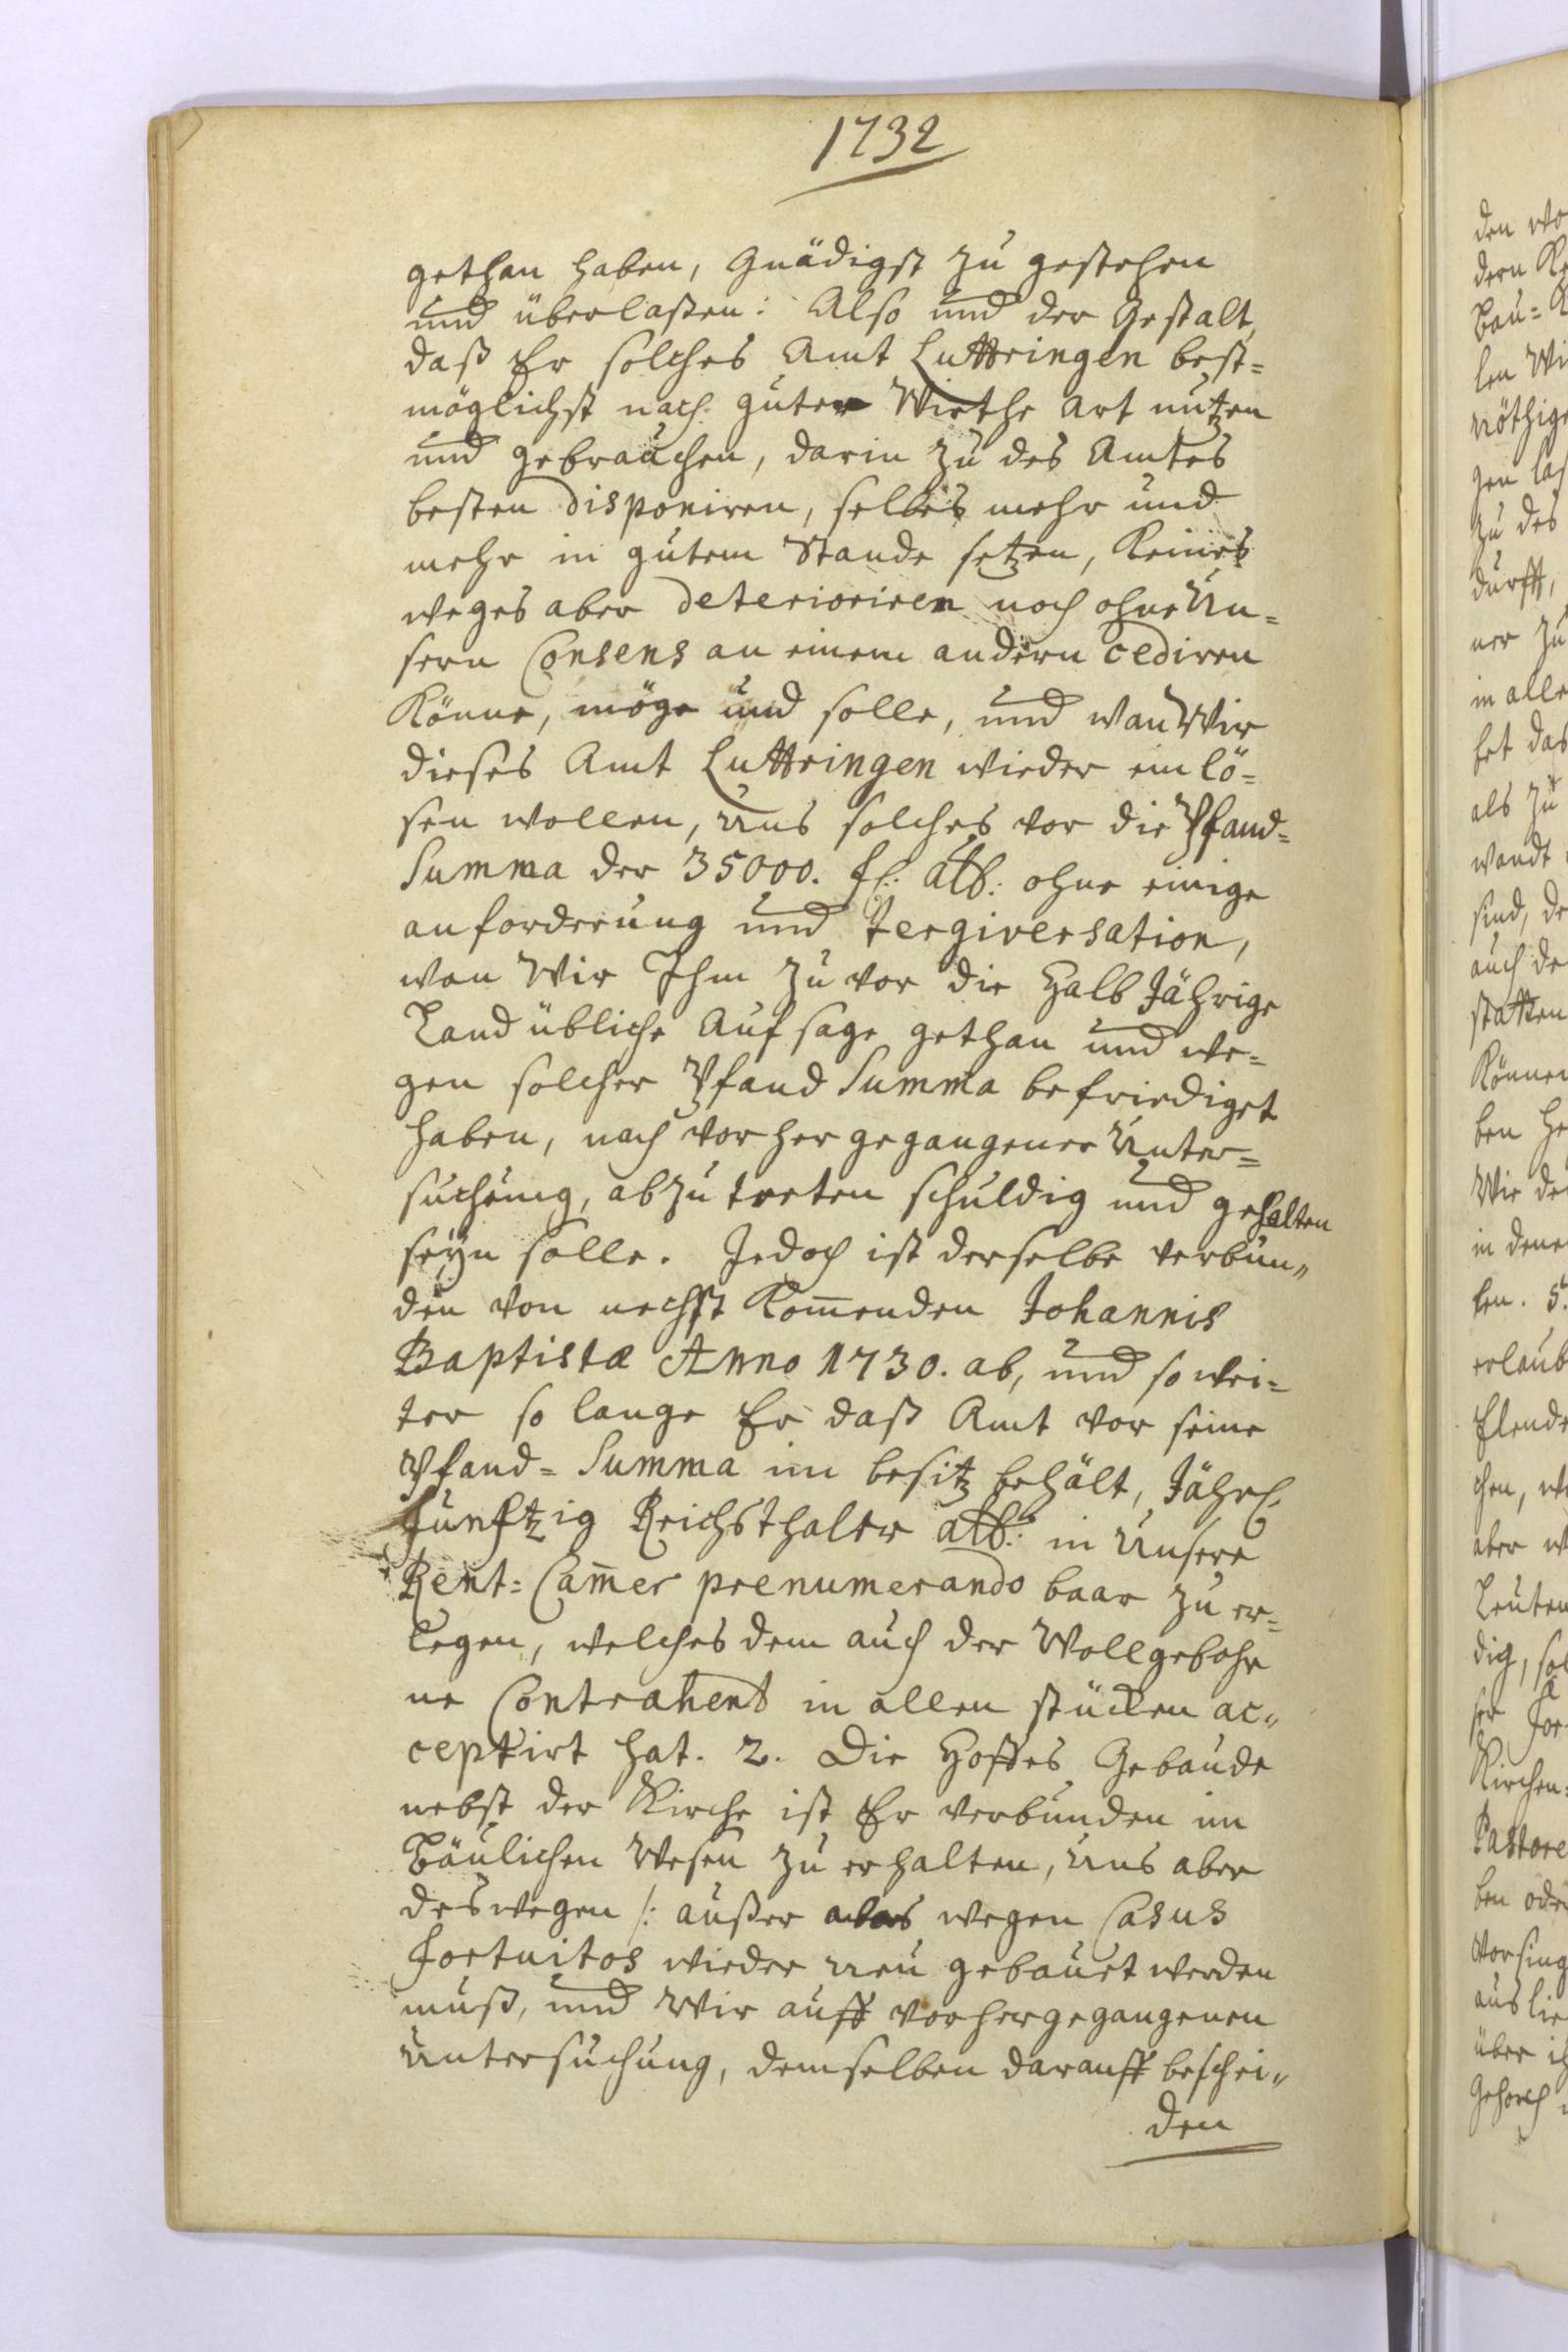 1732
gethan haben, Gnädigst zu gestehen
und überlaßen: Also und der Gestalt,
daß Er solches Amt Luttringen best=
möglichst nach guter Wirthe Art nutzen
und gebrauchen, darin zu des Amtes
besten disponiren, selbes mehr und
mehr in gutem Stande setzen, Keines
weges aber deterioriren noch ohne Un=
sern Consens an einem andern cediren
Könne, möge und solle, und wan Wir
dieses Amt Luttringen wieder einlö=
sen wollen, uns solches vor die Pfand=
Summa der 35000. fl: alb: ohne einige
anforderung und Tergiversation,
wan Wir Ihm zu vor die Halb Jährige
Land übliche Aufsage gethan und we=
gen solcher Pfand Summa befriediget
haben, nach vorher gegangener Unter=
suchung, abzutreten schuldig und gehalten
seyn solle. Jedoch ist derselbe verbun„
den von nechst Kom̅enden Johannis
Baptistæ Anno 1730. ab, und so wei=
ter so lange Er daß Amt vor seine
Pfand=Summa im besitz behält, Jährl:
funftzig Reichsthaler alb: in Unsere
Rent=Cam̅er prenumerando baar zu er=
legen, welches dem auch der Wollgebohr
ne Contrahent in allen stücken ac„
ceptirt hat. 2. Die Hoffes Gebäude
nebst der Kirche ist Er verbunden im
Bäulichen Wesen zu erhalten, uns aber
deswegen /: außer wegen Casus
Fortuitos wieder neu gebauet werden
muß, und Wir auff vorhergegangenen
Untersuchung, demselben darauff beschei„
den
den wo
dern
Bau=
len Wi
nöthig
gen las
zu des
durfft,
ner zu
in alle
bet das
als zu
wandt
sind, de
auch de
statten
Können
ben
Wir de
in dene
len. 5.
erlaub
Elende
chen, we
aber w
Leuten
dig, sol
ser For
Kirchen=
Pastore
ben oder
Vorsing
auslie
über ih
Gehorch